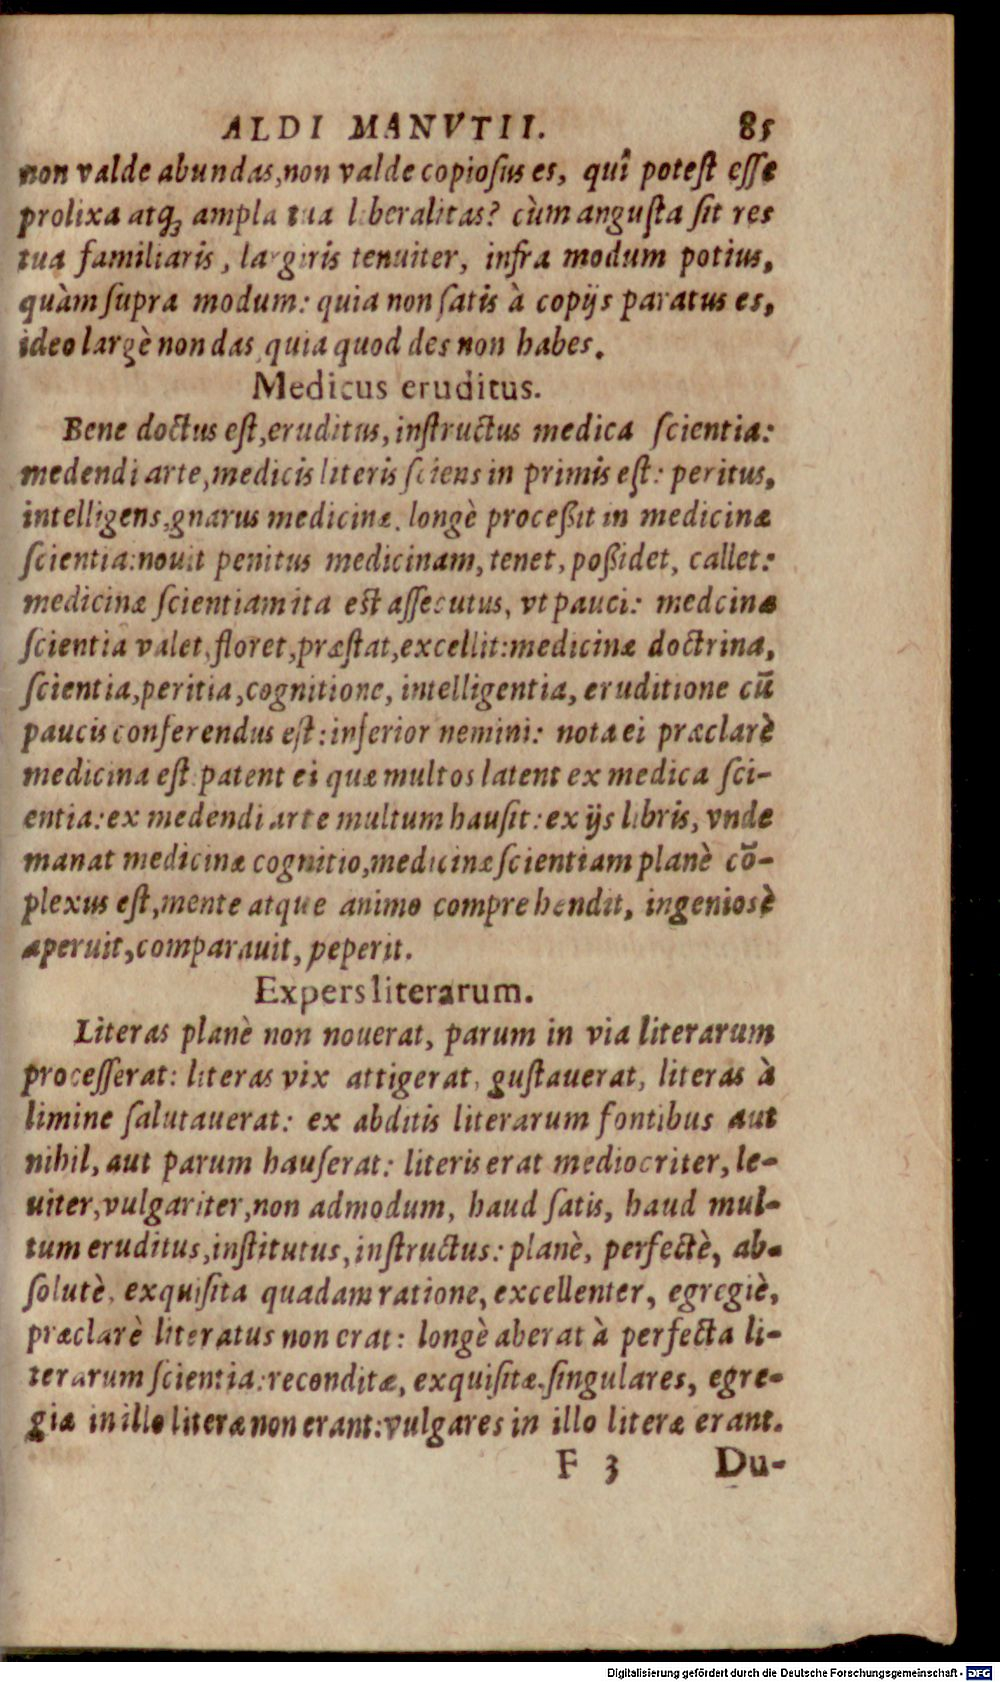 ALDI MANVTII. 85
non valde abundas, non valde copiosus es, quî potest esse
prolixa atq; ampla tua liberalitas? cùm angusta sit res
tua familiaris, largiris tenuiter, infra modum potius,
quàm supra modum: quia non satis à copijs paratus es,
ideo largè non das, quia quod des non habes.
Medicus eruditus.
Bene doctus est, eruditus, instructus medica scientia:
medendi arte, medicis literis sciens in primis est: peritus,
intelligens, gnarus medicinæ. longè processit in medicinæ
scientia: nouit penitus medicinam, tenet, possidet, callet:
medicinæ scientiam ita est assecutus, vt pauci: medcinæ
scientia valet, floret, præstat, excellit: medicinæ doctrina,
scientia, peritia, cognitione, intelligentia, eruditione cū
paucis conferendus est: inferior nemini: nota ei præclarè
medicina est patent ei quæ multos latent ex medica sci-
entia: ex medendi arte multum hausit: ex ijs libris, vnde
manat medicinæ cognitio, medicinæ scientiam planè cō-
plexus est, mente atque animo comprehendit, ingeniosè
aperuit, comparauit, peperit.
Expers literarum.
Literas planè non nouerat, parum in via literarum
processerat: literas vix attigerat, gustauerat, literas à
limine salutauerat: ex abditis literarum fontibus aut
nihil, aut parum hauserat: literis erat mediocriter, le-
uiter, vulgariter, non admodum, haud satis, haud mul-
tum eruditus, institutus, instructus: planè, perfectè, ab-
solutè, exquisita quadam ratione, excellenter, egregiè,
præclarè literatus non erat: longè aberat à perfecta li-
terarum scientia: reconditæ, exquisitæ, singulares, egre-
giæ in illo literæ non erant: vulgares in illo literæ erant.
F 3 Du-
Digitalisierung gefördert durch die Deutsche Forschungsgemeinschaft - DFG